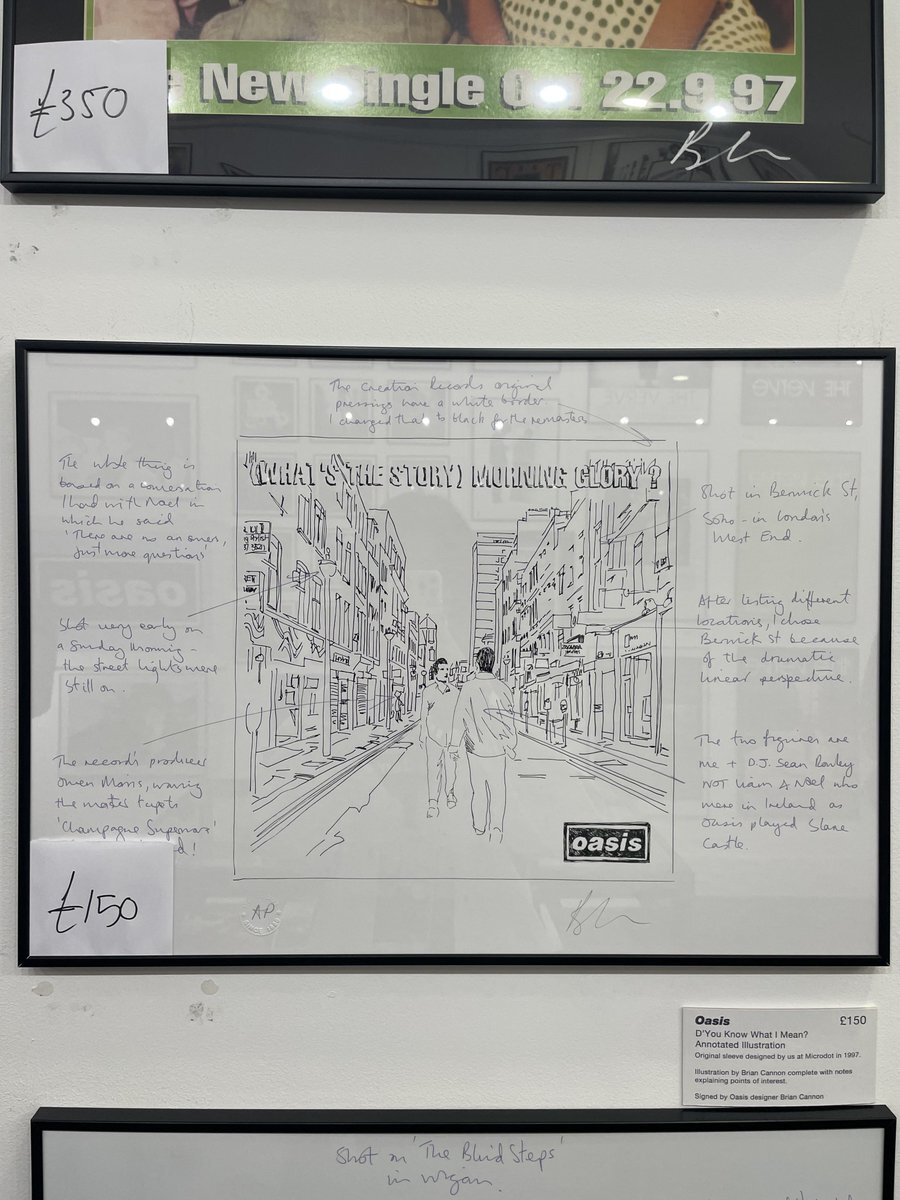 £350
New Single Out 22.9.97
The Creation Records original
pressings have a white border.
I changed that to black for the remasters
The whole thing is
based on a conversation
I had with Noel in
which he said
'There are no answers,
just more questions'
Shot very early on
a Sunday morning -
the street lights were
still on.
The record's producer
Owen Morris, waving
the master tapes
'Champagne Supernova'
(WHAT'S THE STORY) MORNING GLORY?
oasis
Shot in Berwick St,
Soho - in London's
West End.
After testing different
locations, I chose
Berwick St because
of the dramatic
linear perspective.
The two figures are
me + D.J. Sean Rowley
NOT Liam & Noel who
were in Ireland as
Oasis played Slane
Castle.
£150
AP
Oasis £150
D'You Know What I Mean?
Annotated Illustration
Original sleeve designed by us at Microdot in 1997.
Illustration by Brian Cannon complete with notes
explaining points of interest.
Signed by Oasis designer Brian Cannon
Shot on 'The Blind Steps'
in Wigan.